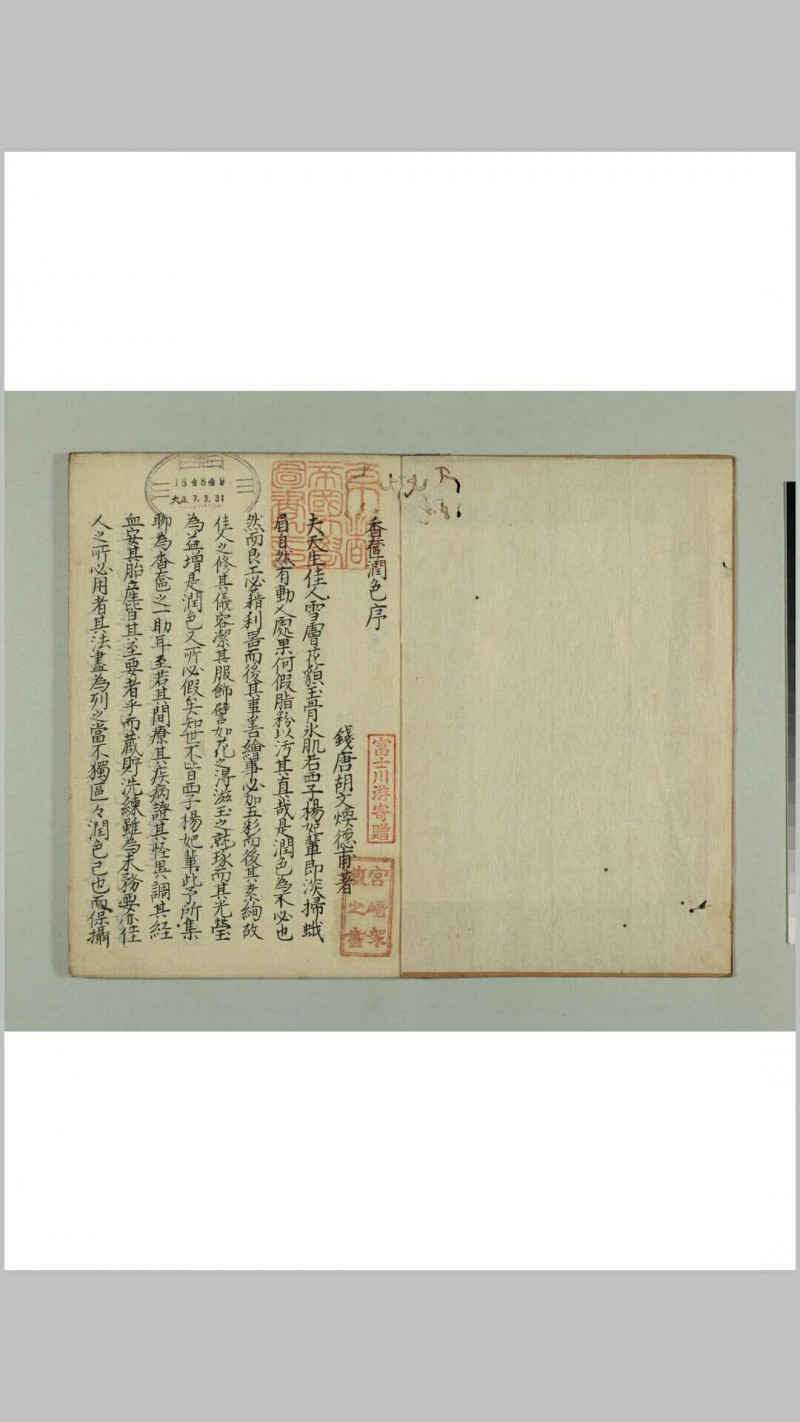 香奩潤色序
錢唐胡文煥德甫著
夫天生佳人雪膚花貌玉骨氷肌若西子楊妃輩即淡掃蛾
眉自然有動人處果何假脂粉以汚其真哉是潤色為不必也
然而良工必藉利器而後其事善繪事必加五彩而後其素絢故
佳人之修其儀容潔其服飾譬如花之淂滋玉之就琢而其光瑩
為益增是潤色又所必假矣知世不皆西子楊妃輩此予所集
聊為香奩之一助耳至若其間療其疾病證其怪異調其経
血安其胎產皆其至要者乎而蔵貯洗練雖為末務要亦佳
人之所必用者其法盡為列之當不獨區々潤色已也而保攝
富士川游寄贈
宮崎家
蔵之書
帝國大學
圖書
184849
大正 7.3.31